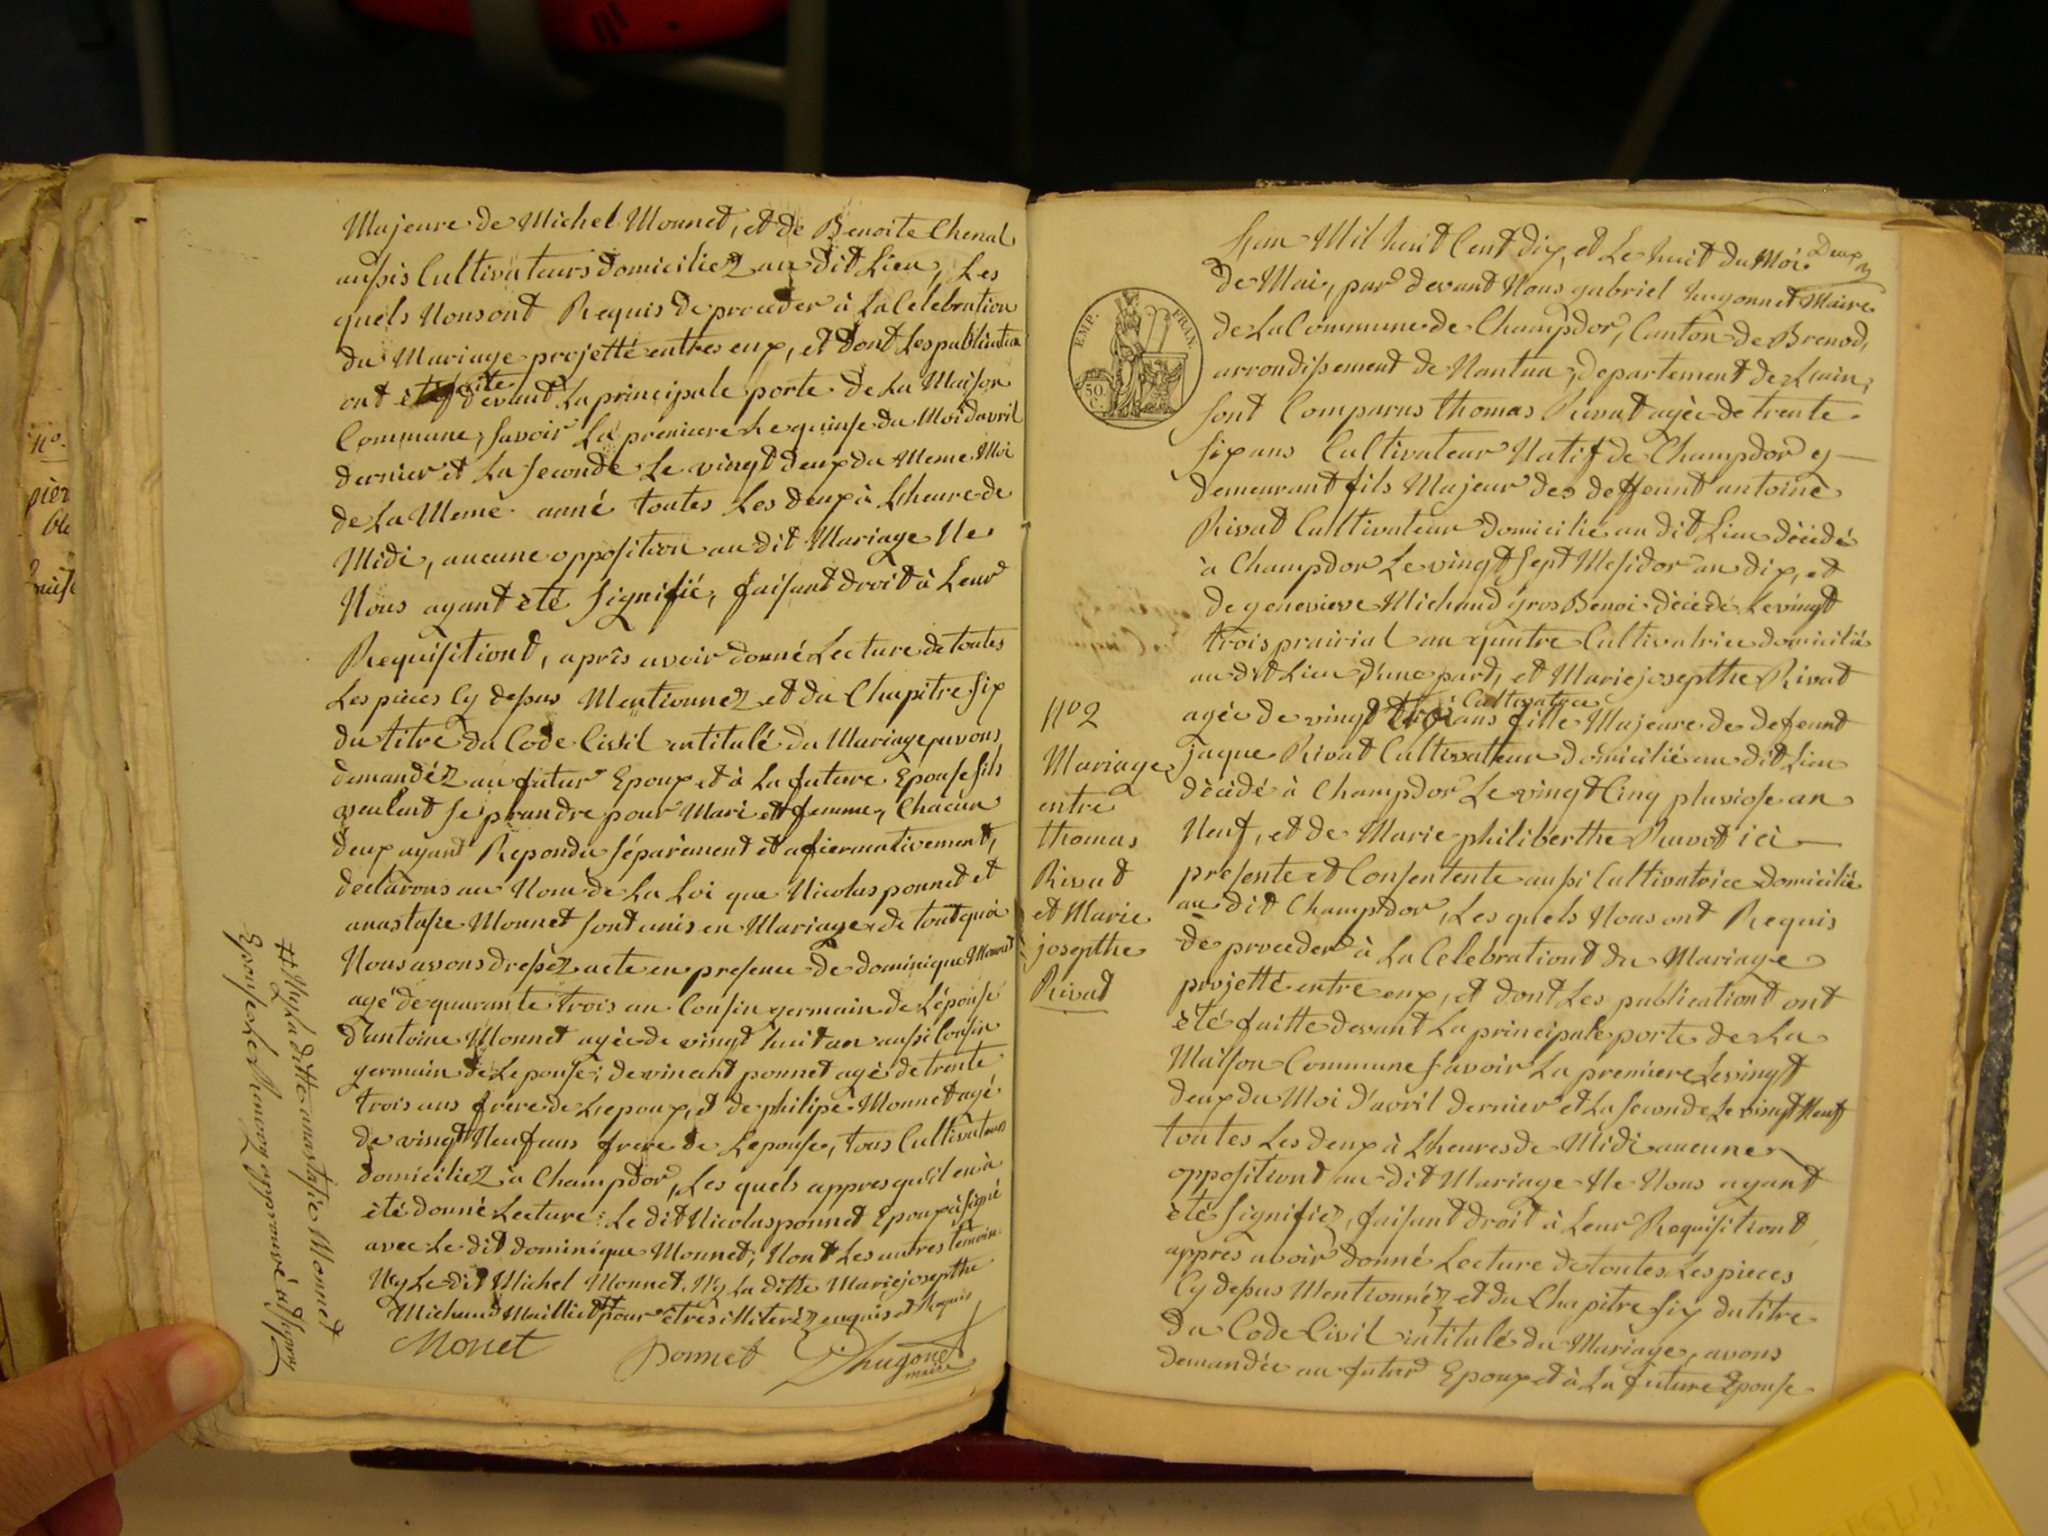 Majeure de Michel Monnet, et de Benoite Chenal
aussis Cultivateurs domiciliez au dit Lieu, Les
quels Nous ont Requis de proceder à La Celebration
du Mariage projetté entres eux, et dont Les publication
ont èté faite devant La principale porte de La Maison
Commune, Savoir La premiere Le quinse du Moi davril
dernier et La Seconde Le vingt deux du Meme Moi
de La Meme anné toutes Les deux à Lheure de
Midi, aucune opposition au dit Mariage Ne
Nous ayant èté Signifié, faisant droit à Leur
Requisitiont, après avoir donné Lecture de toutes
Les pièces Cy dessus Mentionnez et du Chapitre Six
du titre du Code Civil intitulé du Mariage, avons
demandéz au futur Epoux et à La future Epouse Sils
veulent Se prandre pour Mari et femme, Chacun
deux ayant Repondu Séparément et afiermativement,
declarons au Nom de La Loi que Nicolas ponnet et
anastasie Monnet Sont unis en Mariage de tout quoi
Nous avons dressèz acte en presence de dominique Monnet
agé de quarante trois an Cousin germain de Lépouse
d'antoine Monnet agée de vingt huit an aussi Cousin
germain de Lepouse, de vincent ponnet agè de trente
trois ans frère de Lepoux, et de philipe Monnet agé
de vingt Neuf ans frere de Lepouse, tous Cultivateurs
domiciliez à Champdor, Les quels appres qu'il en à
èté donné Lecture Le dit Nicolas ponnet Epoux à Signé
avec Le dit dominique Monnet, Nont Les autres temoin
Ny Le dit Michel Monnet, Ny La ditte Marie josepthe
Michaud Maillet pour ètres illiteréz enquis et Requis
Monet ponnet Dhugonet
maire
# Ny La ditte anastasie Monnet
Epouse Le Renvoy approuvé
L'an Mil huit Cent dix, et Le huit du Moi
Deux
de Mai, par devant Nous gabriel hugonnet Maire
de La Commune de Champdor, Canton de Brenod,
arrondissement de Nantua, departement de Lain,
EMP. FRAN.
50 C.
Sont Comparus thomas Rivat agèe de trente
Six ans Cultivateur Natif de Champdor ey
demeurant fils Majeur des deffeunt antoine
Rivat Cultivateur domicilié au dit Lieu dècédé
à Champdor Le vingt Sept Mesidor an dix, et
de genevieve Michaud gros Benoi dècèdé Le vingt
trois prairial an quatre Cultivatrice domicilié
au dit Lieu d'une part, et Marie josepthe Rivat
Cultivatrice
agèe de vingt trois ans fille Majeure de defeunt
jaque Rivat Cultivateur domicilié au dit Lieu
dècèdé à Champdor Le vingt Cinq pluviose an
Neuf, et de Marie philiberthe Ravot ici
presente et Consentente aussi Cultivatrice domicilié
au dit Champdor, Les quels Nous ont Requis
de proceder à La Celebrationt du Mariage
projetté entre eux, et dont Les publicationt ont
èté faitte devant La principale porte de La
Maison Commune Savoir La premiere Le vingt
deux du Moi d'avril dernier et La Seconde Le vingt Neuf
toutes Les deux à Lheures de Midi aucune
oppositiont au dit Mariage Ne Nous ayant
èté Signifiez, faisant droit à Leur Requisitiont
appres avoir donné Lecture de toutes Les pieces
Cy dessus Mentionnéz et du Chapitre Six du titre
du Code Civil intitulé du Mariage, avons
demandée au futur Epoux et à La future Epouse
No 2
Mariage
entre
thomas
Rivat
et Marie
josepthe
Rivat
No